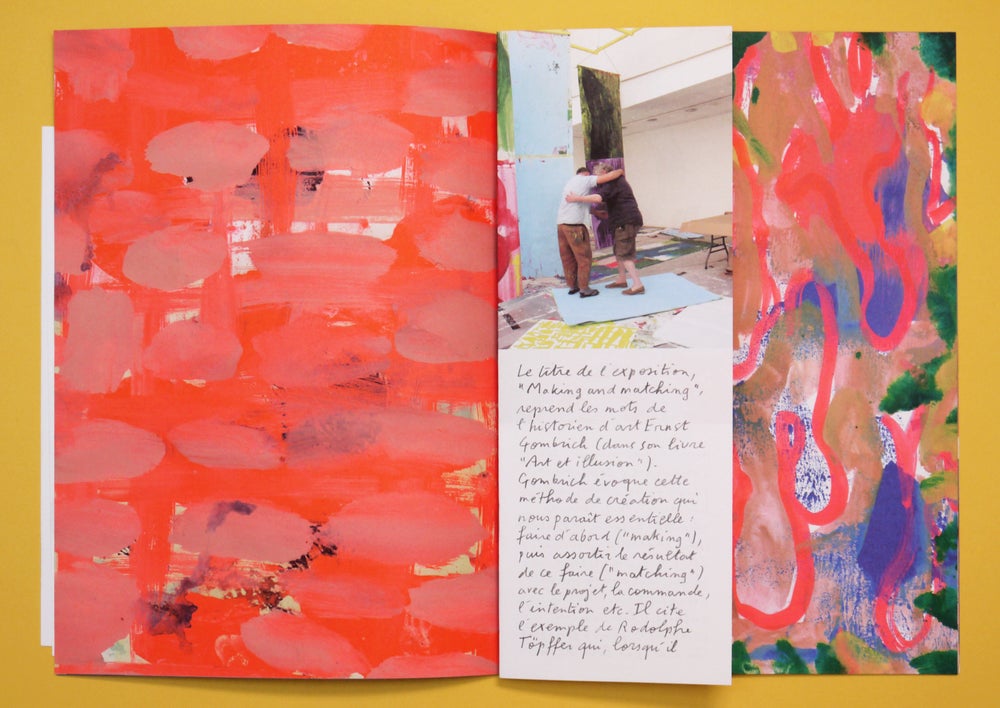 Le titre de l'exposition,
"Making and matching",
reprend les mots de
l'historien d'art Ernst
Gombrich (dans son livre
"Art et illusion").
Gombrich évoque cette
méthode de création qui
nous paraît essentielle :
faire d'abord ("making"),
puis assortir le résultat
de ce faire ("matching")
avec le projet, la commande,
l'intention etc. Il cite
l'exemple de Rodolphe
Töpffer qui, lorsqu'il